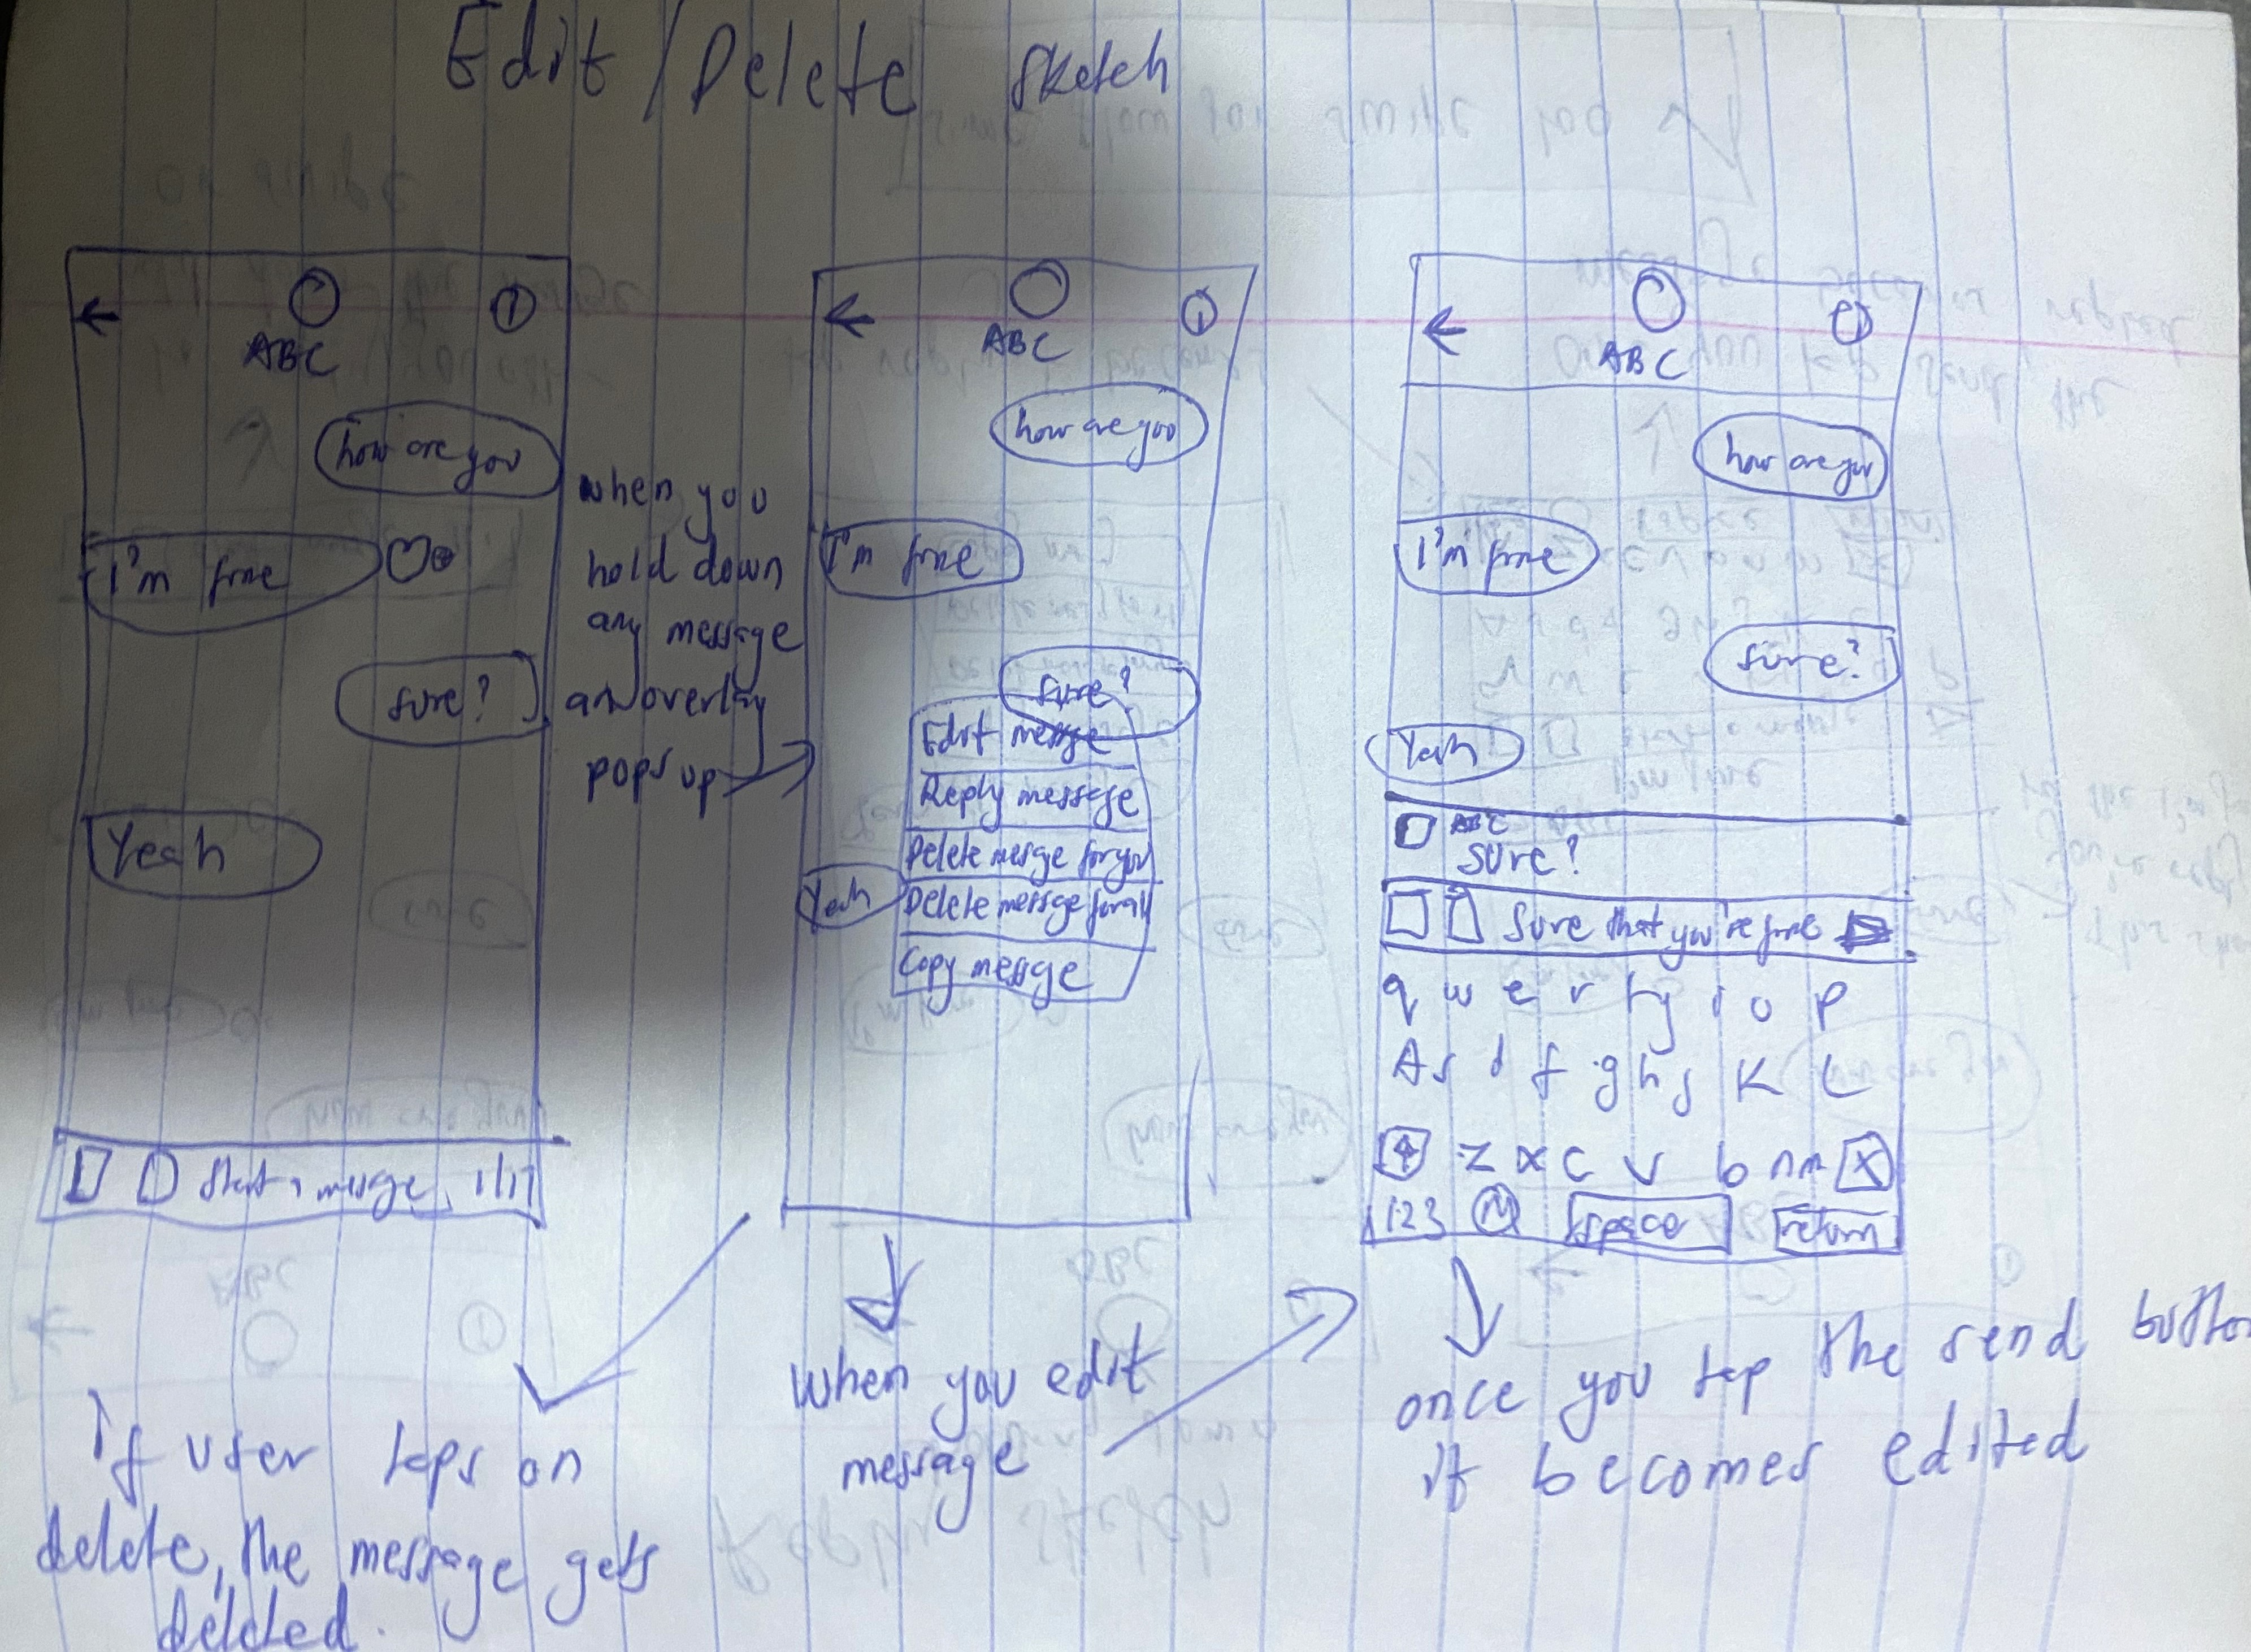 Edit/Delete sketch
ABC
how are you
I'm fine
sure?
Yeah
Start a message
when you
hold down
any message
an overlay
pops up
ABC
how are you
I'm fine
sure?
Edit message
Reply message
Delete messge for you
Yeah
Delete messge for all
Copy messge
ABC
how are you
I'm fine
sure?
Yeah
ABC
sure?
Sure that you're fine
q w e r t y i o p
A s d f g h j K L
z x c v b n m X
123 space return
If user taps on
delete, the message gets
deleted.
when you edit
message
once you tap the send button
it becomes edited